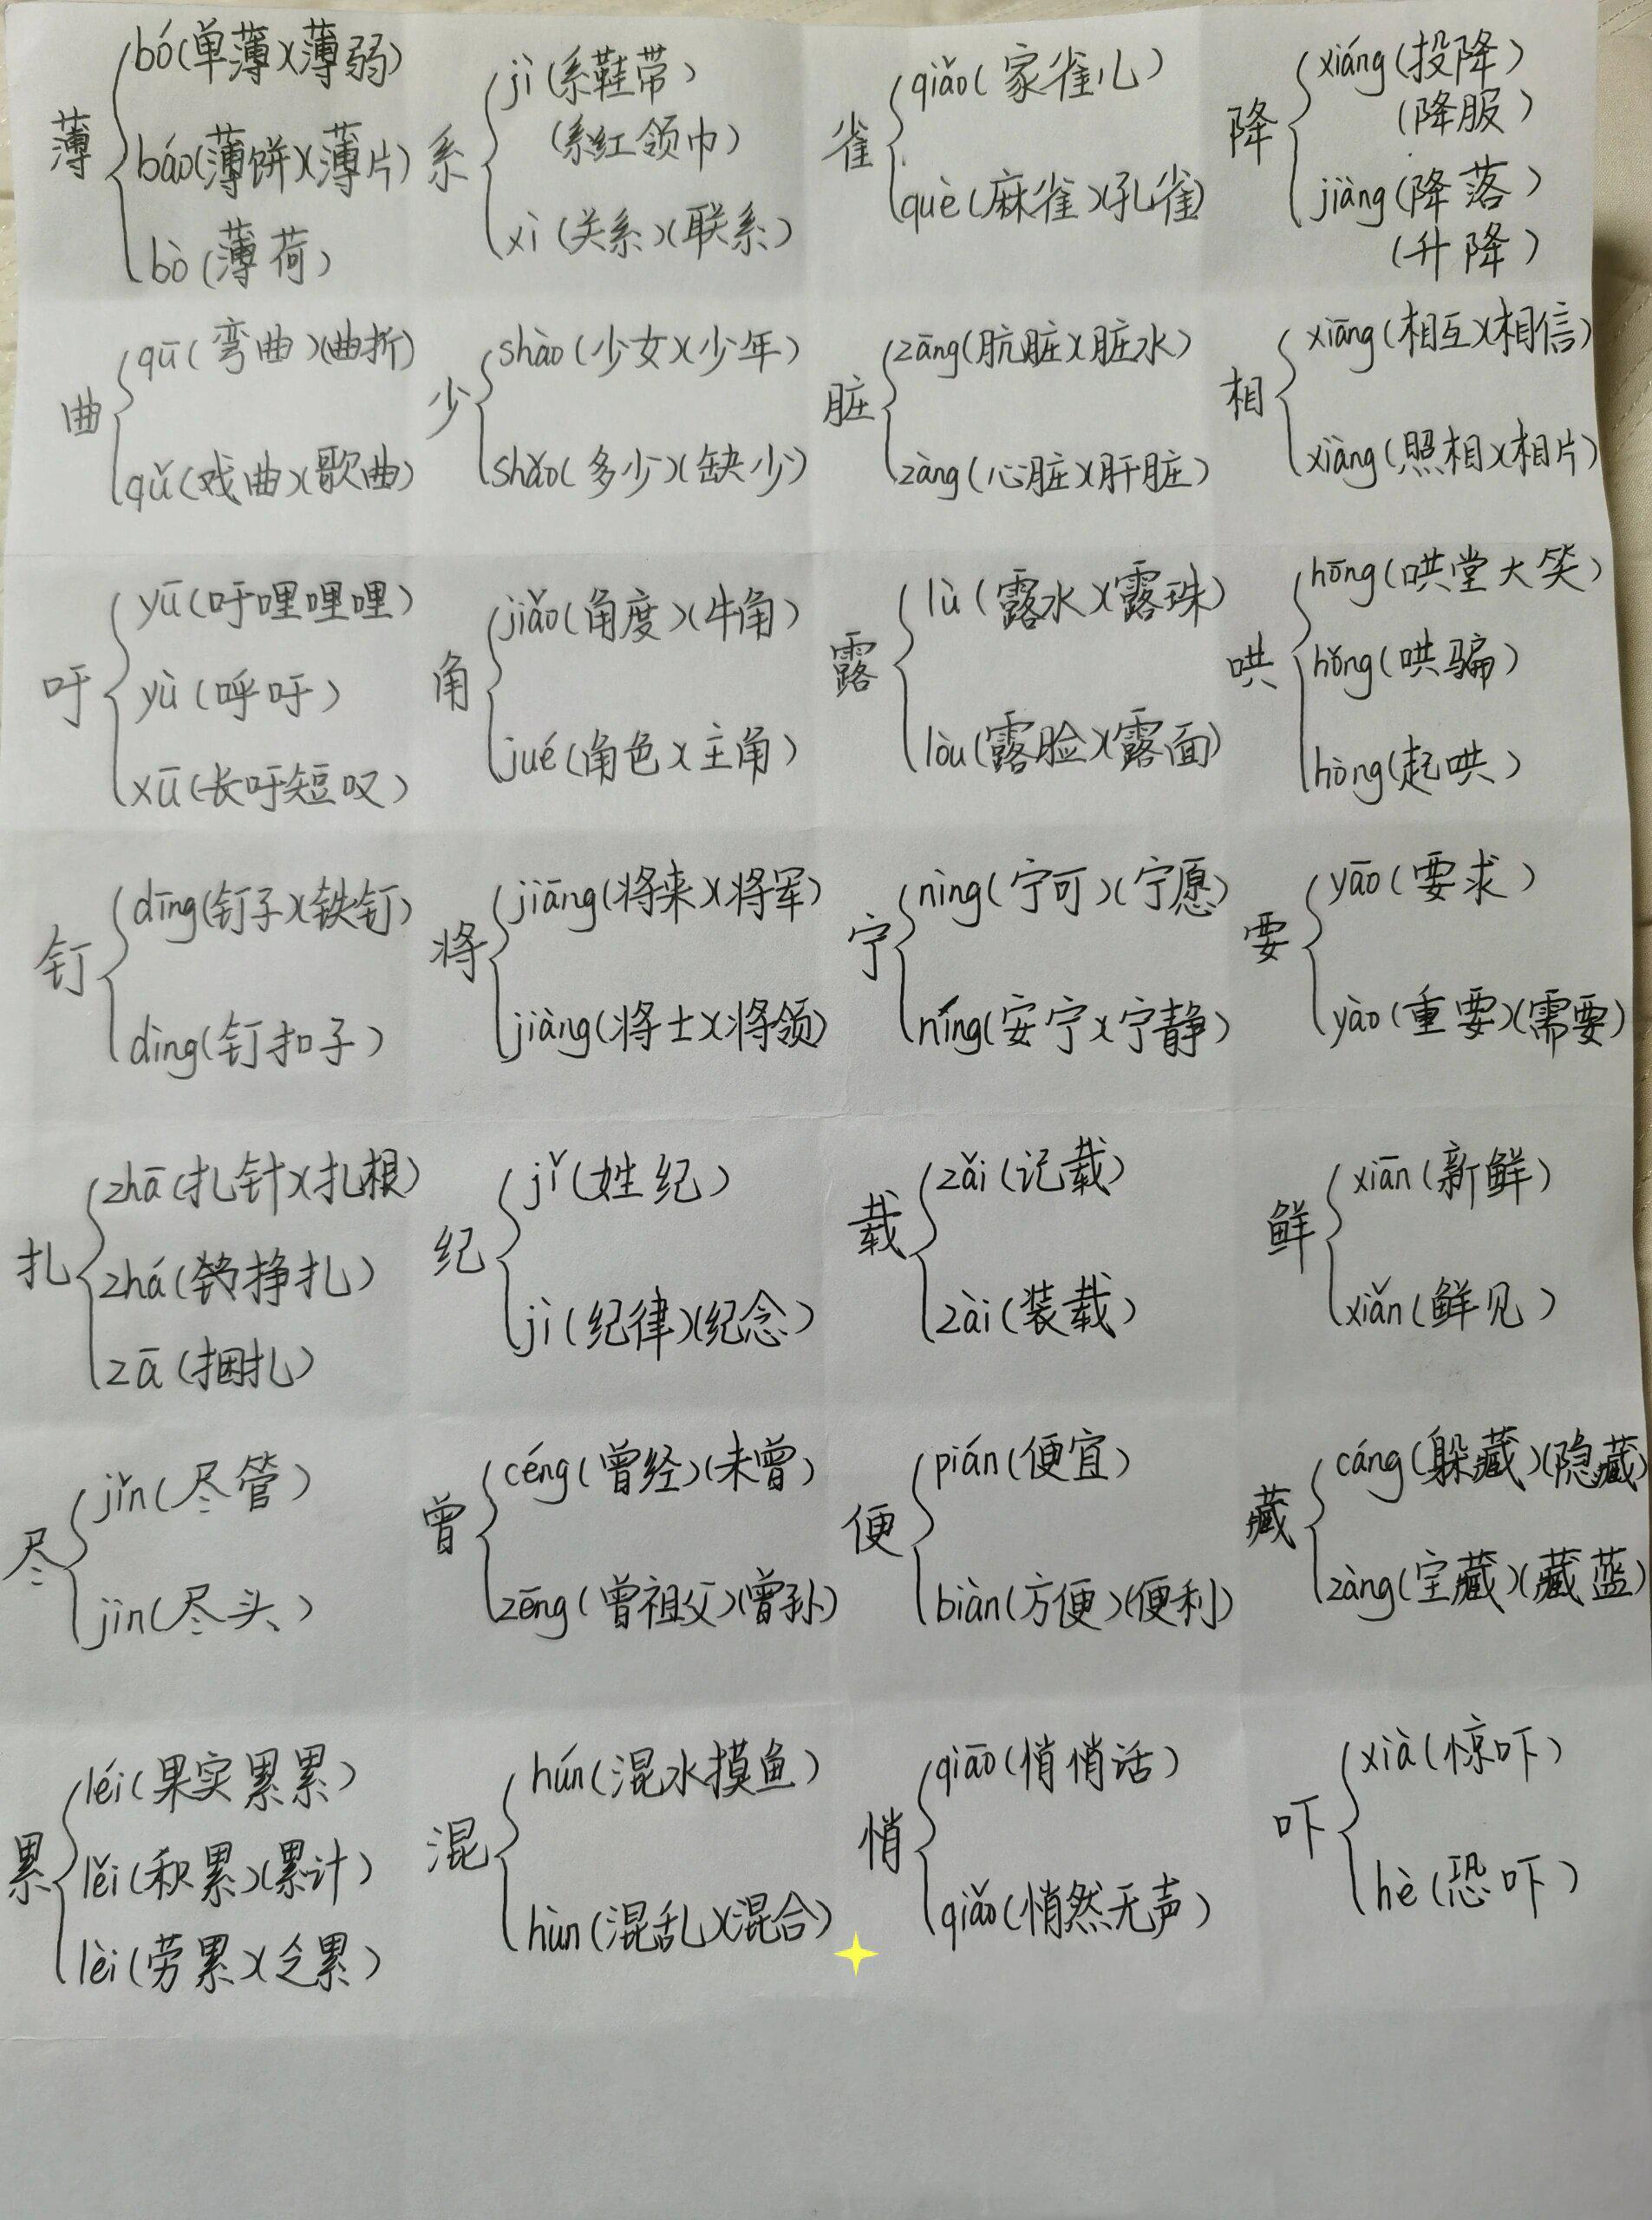 薄 bó(单薄)(薄弱)
báo(薄饼)(薄片)
bò(薄荷)
系 jì(系鞋带)
(系红领巾)
xì(关系)(联系)
雀 qiǎo(家雀儿)
què(麻雀)(孔雀)
降 xiáng(投降)
(降服)
jiàng(降落)
(升降)
曲 qū(弯曲)(曲折)
qǔ(戏曲)(歌曲)
少 shào(少女)(少年)
shǎo(多少)(缺少)
脏 zāng(肮脏)(脏水)
zàng(心脏)(肝脏)
相 xiāng(相互)(相信)
xiàng(照相)(相片)
吁 yū(吁哩哩哩)
yù(呼吁)
xū(长吁短叹)
角 jiǎo(角度)(牛角)
jué(角色)(主角)
露 lù(露水)(露珠)
lòu(露脸)(露面)
哄 hōng(哄堂大笑)
hǒng(哄骗)
hòng(起哄)
钉 dīng(钉子)(铁钉)
dìng(钉扣子)
将 jiāng(将来)(将军)
jiàng(将士)(将领)
宁 nìng(宁可)(宁愿)
níng(安宁)(宁静)
要 yāo(要求)
yào(重要)(需要)
扎 zhā(扎针)(扎根)
zhá(挣扎)
zā(捆扎)
纪 jǐ(姓纪)
jì(纪律)(纪念)
载 zǎi(记载)
zài(装载)
鲜 xiān(新鲜)
xiǎn(鲜见)
尽 jǐn(尽管)
jìn(尽头)
曾 céng(曾经)(未曾)
zēng(曾祖父)(曾孙)
便 pián(便宜)
biàn(方便)(便利)
藏 cáng(躲藏)(隐藏)
zàng(宝藏)(藏蓝)
累 léi(果实累累)
lěi(积累)(累计)
lèi(劳累)(受累)
混 hún(混水摸鱼)
hùn(混乱)(混合)
悄 qiāo(悄悄话)
qiǎo(悄然无声)
吓 xià(惊吓)
hè(恐吓)